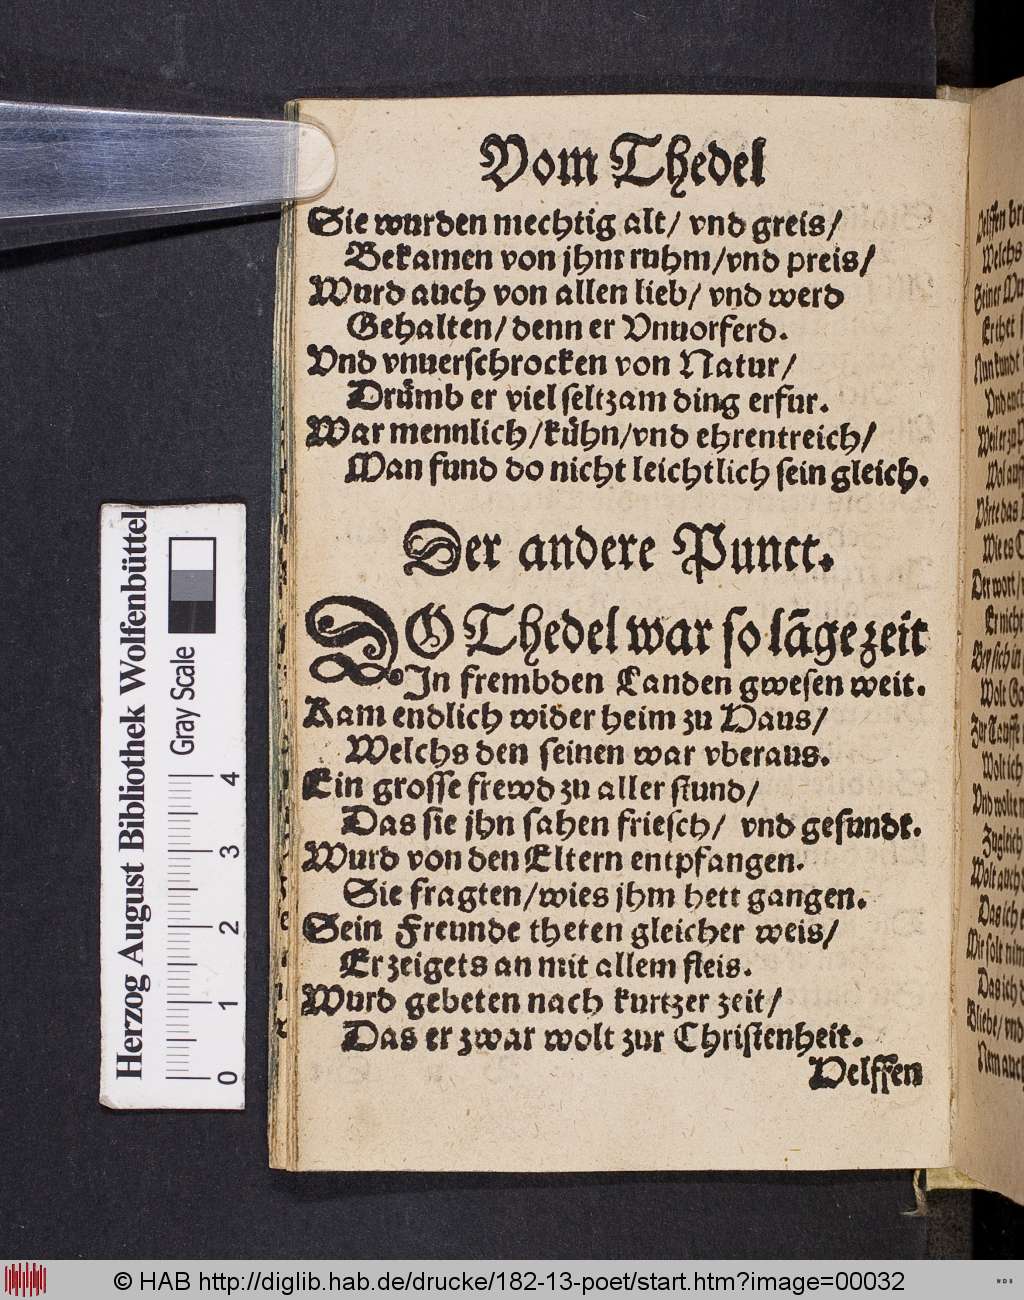 Vom Thedel
Sie wurden mechtig alt/ vnd greis/
Bekamen von jhm ruhm/vnd preis/
Wurd auch von allen lieb/ vnd werd
Gehalten/ denn er Vnuorferd.
Vnd vnuerschrocken von Natur/
Druͤmb er viel seltzam ding erfur.
War mennlich/kuͤhn/vnd ehrentreich/
Man fund do nicht leichtlich sein gleich.
Der andere Punct.
DO Thedel war so lāge zeit
In frembden Landen gwesen weit.
Kam endlich wider heim zu Haus/
Welchs den seinen war vberaus.
Ein grosse frewd zu aller stund/
Das sie jhn sahen friesch/ vnd gesundt.
Wurd von den Eltern entpfangen.
Sie fragten/wies jhm hett gangen.
Sein Freunde theten gleicher weis/
Erzeigets an mit allem fleis.
Wurd gebeten nach kurtzer zeit/
Das er zwar wolt zur Christenheit.
Helffen
Herzog August Bibliothek Wolfenbüttel
Gray Scale
0 1 2 3 4
© HAB http://diglib.hab.de/drucke/182-13-poet/start.htm?image=00032